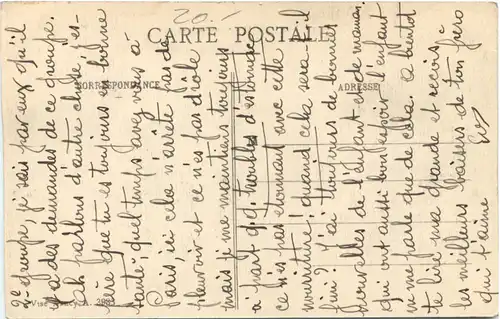 20.-
CARTE POSTALE
CORRESPONDANCE
ADRESSE
2e groupe, je sais par eux qu'il
y a des demandes de ce groupe.
Ah parlons d'autre chose, j'es-
père que tu es toujours en bonne
santé; quel temps avez vous à
Paris, ici cela n'arrête pas de
pleuvoir et ce n'est pas drôle
mais je me maintiens toujours
à part qq. troubles d'estomac
ce n'est pas étonnant avec cette
nourriture! quand cela sera-t-il
fini? J'ai toujours de bonnes
nouvelles de l'enfant et de maman
qui ont aussi bon espoir l'enfant
ne me parle que de cela. A bientôt
te lire ma grande et reçois
les meilleurs baisers de ton frère
qui t'aime
Visé Nancy